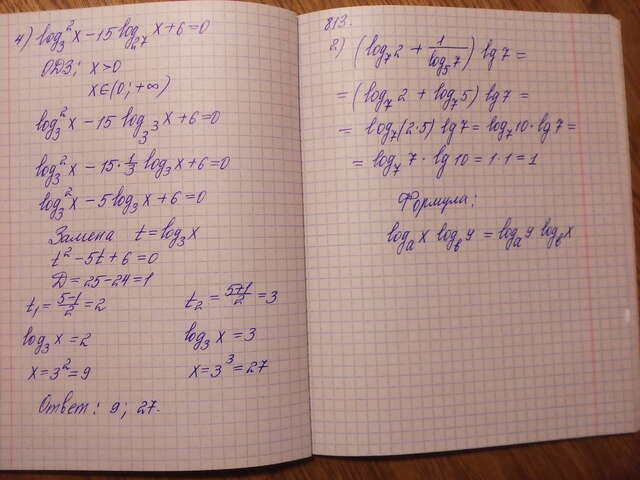 4) log₃²x − 15 log₂₇ x + 6 = 0
ОДЗ: x > 0
x ∈ (0; +∞)
log₃²x − 15 log₃³ x + 6 = 0
log₃²x − 15 · 1/3 log₃x + 6 = 0
log₃²x − 5 log₃x + 6 = 0
Замена t = log₃x
t² − 5t + 6 = 0
D = 25 − 24 = 1
t₁ = (5−1)/2 = 2 t₂ = (5+1)/2 = 3
log₃x = 2 log₃x = 3
x = 3² = 9 x = 3³ = 27
Ответ: 9; 27.
813.
2) (log₇2 + 1/log₅7) lg7 =
= (log₇2 + log₇5) lg7 =
= log₇(2·5) lg7 = log₇10 · lg7 =
= log₇7 · lg10 = 1·1 = 1
Формула:
logₐx log_b y = logₐy log_b x